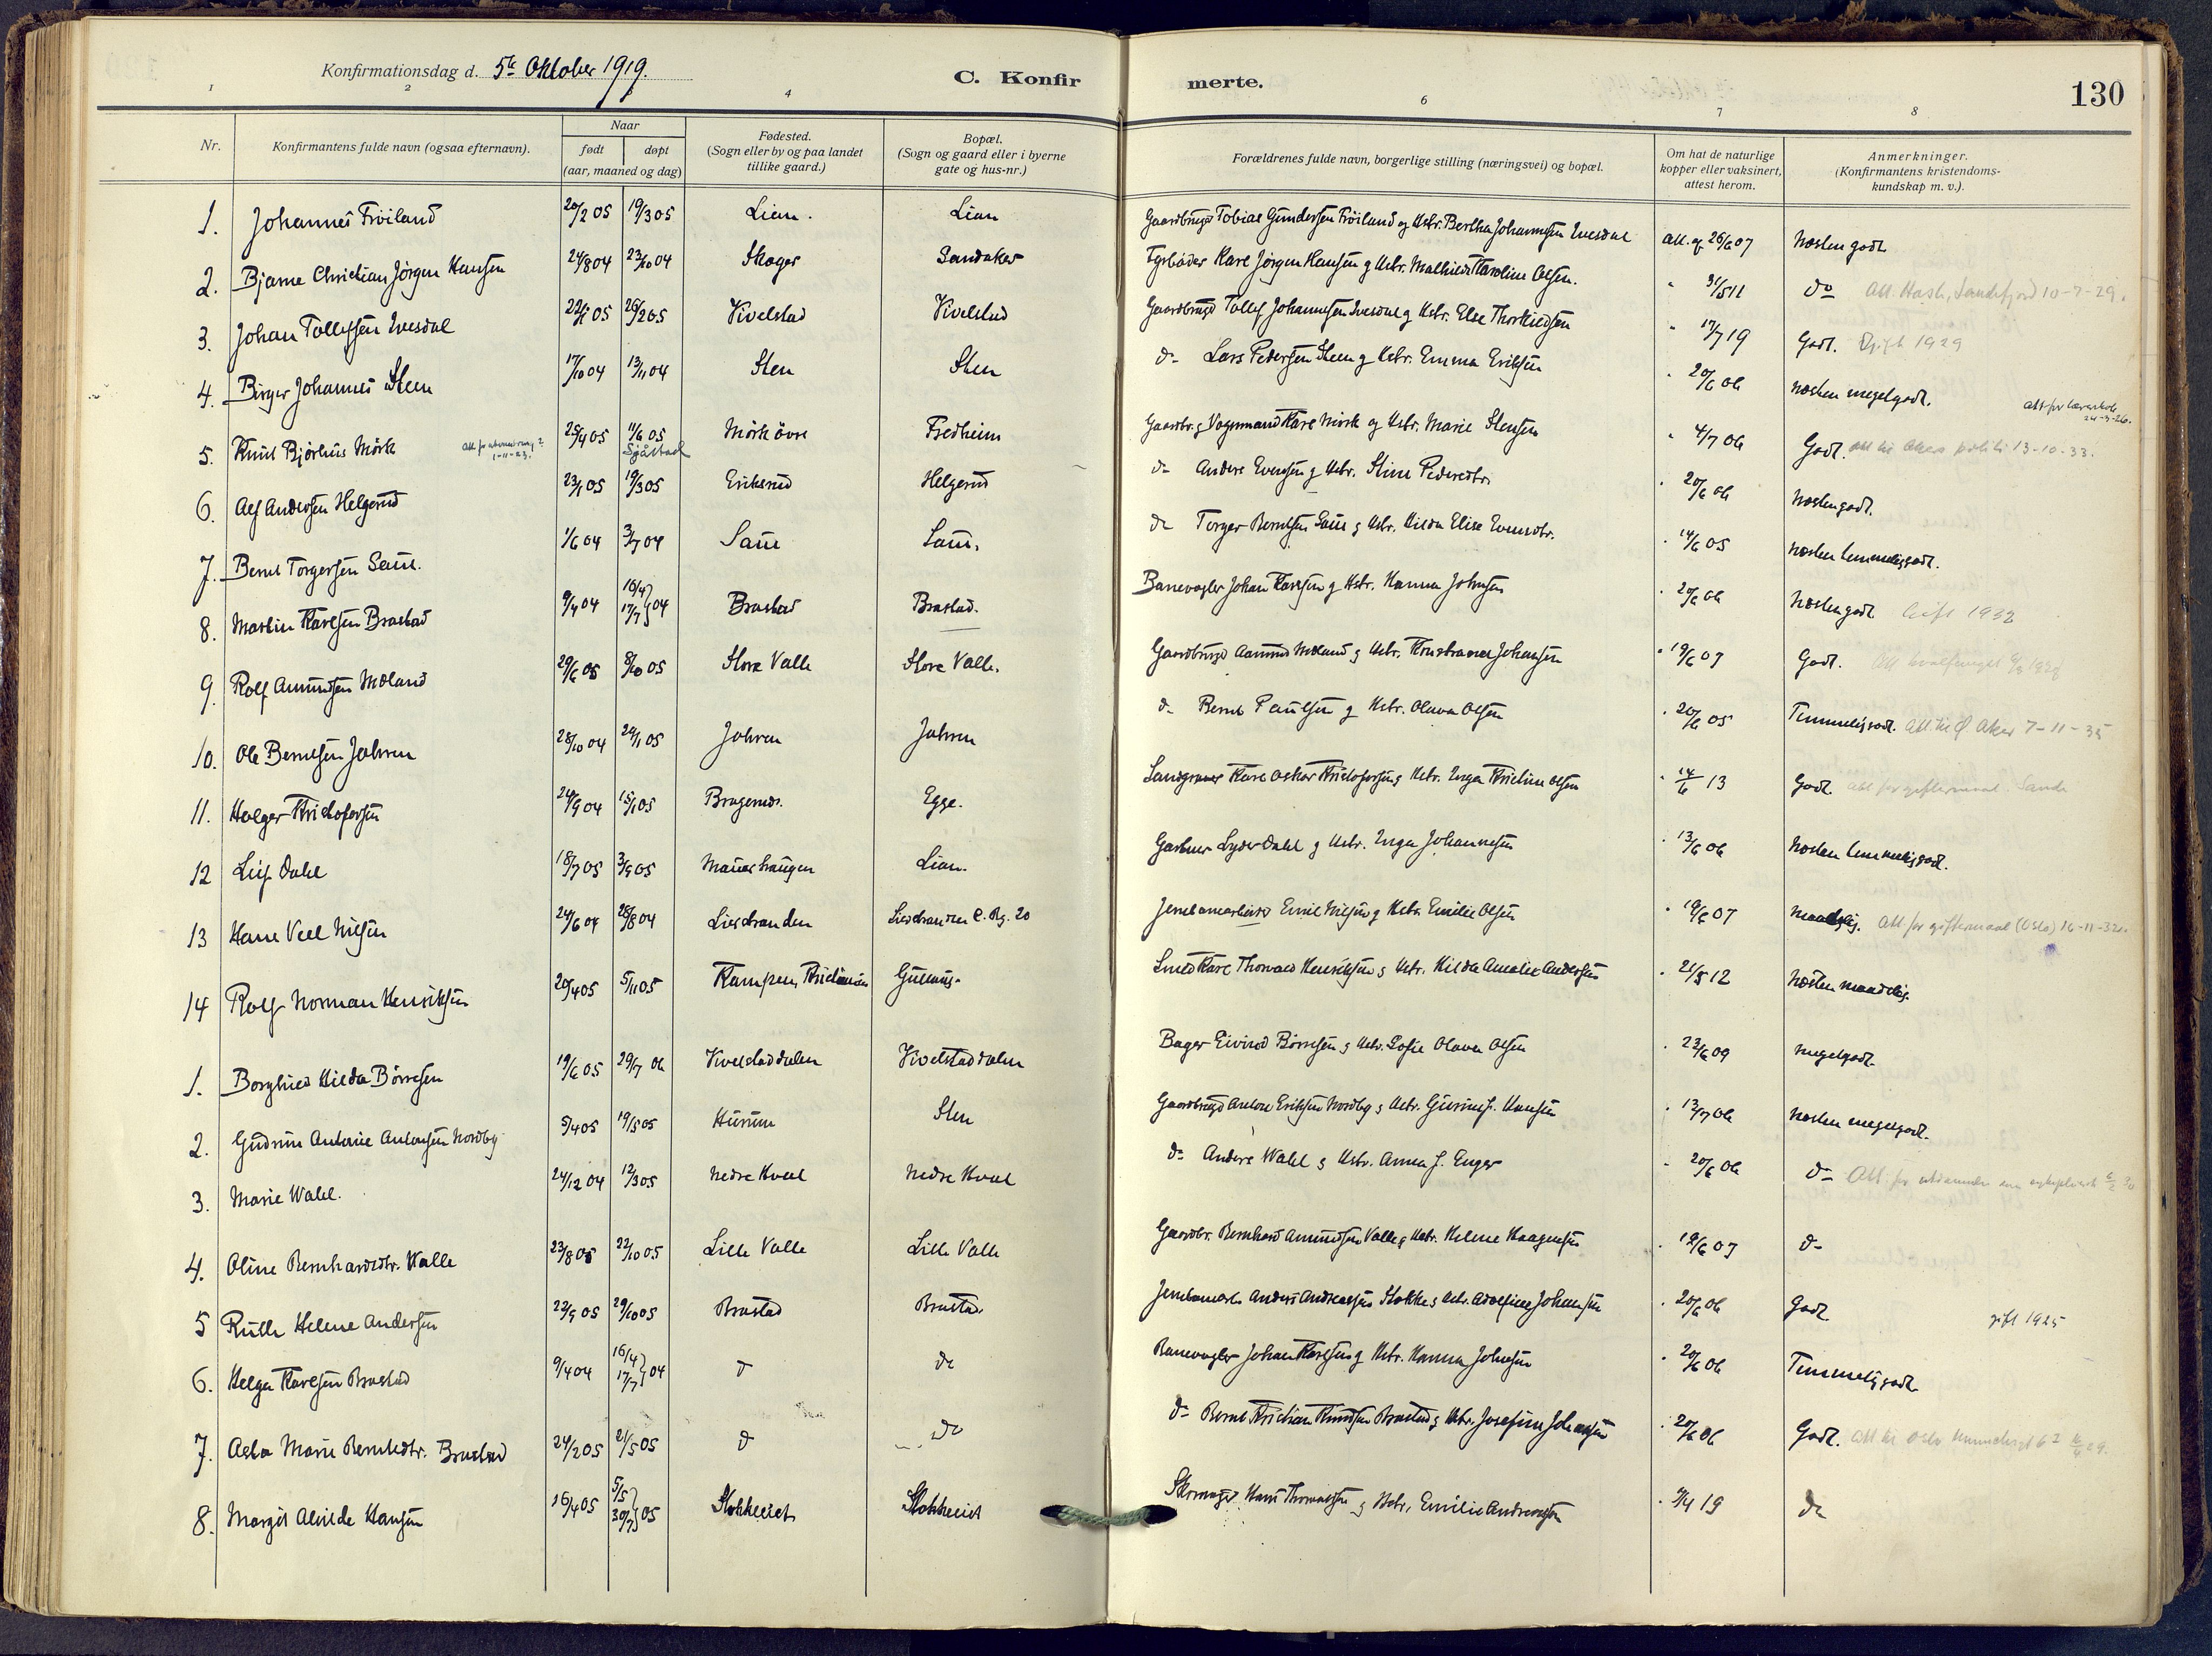 Konfirmationsdag d. 5te Oktober 1919. C. Konfirmerte. 130
1 2 3 4 6 7 8
Nr. Konfirmantens fulde navn (ogsaa efternavn). Naar født døpt (aar, maaned og dag) Fødested. (Sogn eller by og paa landet tillike gaard.) Bopæl. (Sogn og gaard eller i byerne gate og hus-nr.) Forældrenes fulde navn, borgerlige stilling (næringsvei) og bopæl. Om hat de naturlige kopper eller vaksinert, attest herom. Anmerkninger. (Konfirmantens kristendoms-kundskap m. v.).
1. Johannes Fröiland 20/2 05 19/3 05 Lian. Lian Gaardbruger Tobias Gundersen Fröiland og Hstr. Bertha Johannesen Ivesdal Att. af 26/6 07 Næsten godt
2. Bjarne Christian Jörgen Hansen 24/8 04 23/10 04 Skoger Sandaker Fyrböder Karl Jörgen Hansen g Hstr. Mathilde Karoline Olsen. " 31/5 11 do Att. Hash, Sandefjord 10-7-29.
3. Johan Tollefsen Ivesdal 05 26/2 05 Kivelstad Kivelstad Gaardbrugr Tollef Johannesen Ivesdal g Hstr. Else Thorkildsen " 17/7 19 Godt. gift 1929
4. Birger Johannes Steen 17/10 04 13/11 04 Sten Sten do Lars Pedersen Steen g Hstr. Emma Eriksen " 20/6 06 Næsten megetgodt. 24-3-26.
5. Knut Bjørhus Mörk 1-11-23. 25/4 05 11/6 05 Sjåstad Mörk övre Fredheim Gaardbr. g Vognmand Karl Mörk og Hstr. Marie Stensen " 4/7 06 Godt. Att til Akers politi 13-10-33.
6. Alf Andersen Helgerud 23/1 05 19/3 05 Eriksrud Helgerud do Anders Evensen g Hstr. Stine Pedersdtr. " 20/6 06 Næsten godt.
7. Bernt Torgersen Saue. 1/6 04 3/7 04 Saue Saue. do Torger Berntsen Saue g Hstr. Hilda Elise Evensdtr. " 14/6 05 Næsten temmeliggodt.
8. Martin Karlsen Brastad 9/4 04 16/4 17/7 } 04 Brastad Brastad. Banevogter Johan Karlsen g Hstr. Hanna Johnsen " 20/6 06 Næsten godt Gift 1932
9. Rolf Amundsen Moland 29/6 05 8/10 05 Store Valle Store Valle. Gaardbrugr Amund Moland g Hstr. Johansen " 19/6 07 Godt.
10. Ole Berntsen Jahren 28/10 04 29/1 05 Jahren Jahren do Bernt Paulsen g Hstr. Olava Olsen " 20/6 05 Temmeliggodt. Att. til Ø Aker 7-11-35
11. Holger Kristofersen 24/9 04 15/1 05 Bragernes. Egge. Karl Oskar Kristofersen g Hstr. Inga Kristine Olsen " 14/6 13 Godt. att for giftermaal. Sande
12 Leif Dahl 18/7 05 3/9 05 Mauerhaugen Lian. Gartner Syver Dahl g Hstr. Inga Johannesen " 13/6 06 Næsten temmeliggodt.
13 Hans Veel Nilsen 24/6 04 28/8 04 Lierstranden Lierstranden C. Bg. 20 Jernbanearbeider Emil Nilsen g Hstr. Emilie Olsen " 19/6 07 maadelig. Att. for giftermaal (Oslo) 16-11-32.
14 Rolf Norman Henriksen 20/4 05 5/11 05 Kampen, Kristiania Gullaug. Smed Karl Thorvald Henriksen g Hstr. Hilda Amalie Andersen " 21/5 12 Næsten maadelig.
1. Borghild Hilda Börresen 19/6 05 29/7 06 Kivelstaddalen Kivelstaddalen Bager Eivind Börresen g Hstr. Sofie Olava Olsen " 23/6 09 megetgodt
2. Gudrun Antonie Antonsen Nordby 5/4 05 19/5 05 Hurum Sten Gaardbrugr Anton Eriksen Nordby g Hstr. Hansen " 13/7 06 Næsten megetgodt.
3. Marie Wahl. 24/12 04 12/3 05 Nedre Hval Nedre Hval do Anders Wahl g Hstr. Anna J. Enger " 20/6 06 do
4. Oline Bernhardsdtr. Valle 23/8 05 22/10 05 Lille Valle Lille Valle Gaardbr. Bernhard Amundsen Valle g Hstr. Helene Haagensen " 19/6 07 do
5 Ruth Helene Andersen 22/9 05 29/10 05 Brastad Brastad. Jernbanearb. Anders Andreassen Stokke g Hstr. Adolfine Johansen " 20/6 06 Godt gift 1925
6. Helga Karlsen Brastad 9/4 04 16/4 17/7 } 04 do do Banevogter Johan Karlsen g Hstr. Hanna Johnsen " 20/6 06 Temmeliggodt
7. Asta Marie Berntsdtr. Brastad 24/2 05 21/5 05 do do do Bernt Kristian Knudsen Brastad g Hstr. Josefine Johansen " 20/6 06 Godt. Att til Oslo
8. Margit Alvilde Hansen 16/4 05 5/5 30/7 } 05 Stokkeeiet Stokkeeiet Skomager Hans Thorvaldsen g Hstr. Emilie Andreassen " 7/4 19 do